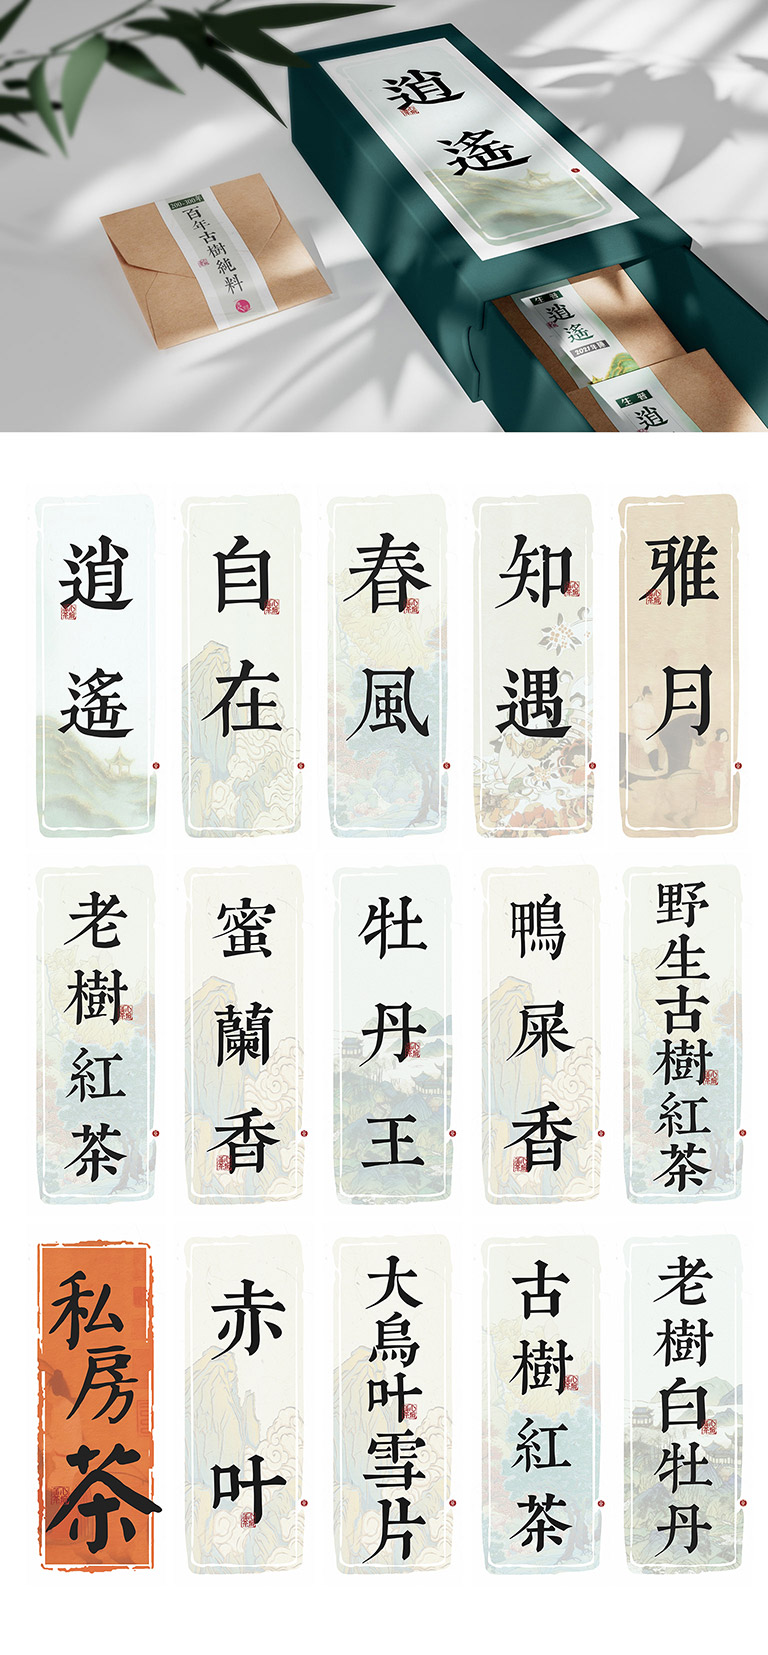 逍遙
200-300年
百年古樹純料
生普
逍遙
2021年 春
生普
逍
逍遙
自在
春風
知遇
雅月
老樹紅茶
蜜蘭香
牡丹王
鴨屎香
野生古樹紅茶
私房茶
赤叶
大烏叶雪片
古樹紅茶
老樹白牡丹